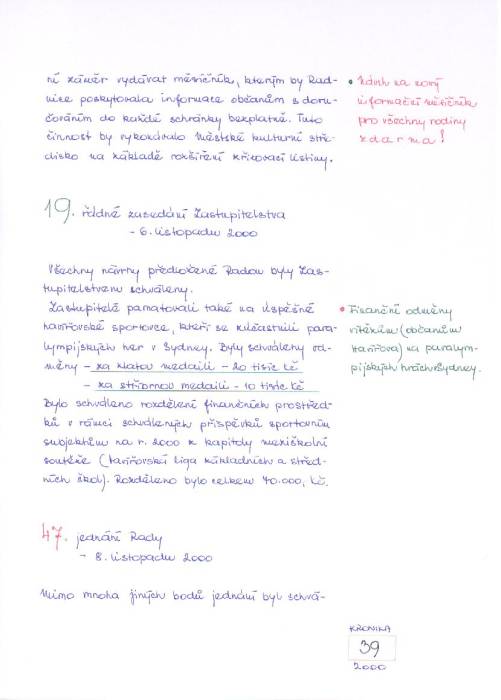 ní záměr vydávat měsíčník, kterým by Rad-
nice poskytovala informace občanům s doru-
čováním do každé schránky bezplatně. Tuto
činnost by vykonávalo Městské kulturní stře-
disko na základě rozšíření zřizovací listiny.
• Vznik na nový
informační měsíčník
pro všechny rodiny
zdarma!
19. řádné zasedání Zastupitelstva
- 6. listopadu 2000
Všechny návrhy předložené Radou byly Zas-
tupitelstvem schváleny.
Zastupitelé pamatovali také na úspěšné
havířovské sportovce, kteří se zúčastnili para-
lympijských her v Sydney. Byly schváleny od-
měny - za zlatou medaili - 20 tisíc Kč
- za stříbrnou medaili - 10 tisíc Kč
• Finanční odměny
vítězům (občanům
Havířova) na paralym-
pijských hrách v Sydney.
Bylo schváleno rozdělení finančních prostřed-
ků v rámci schválených příspěvků sportovním
subjektům na r. 2000 z kapitoly meziškolní
soutěže (Havířovská liga základních a střed-
ních škol). Rozděleno bylo celkem 40.000,- Kč.
47. jednání Rady
- 8. listopadu 2000
Mimo mnoha jiných bodů jednání byl schvá-
KRONIKA
39
2000